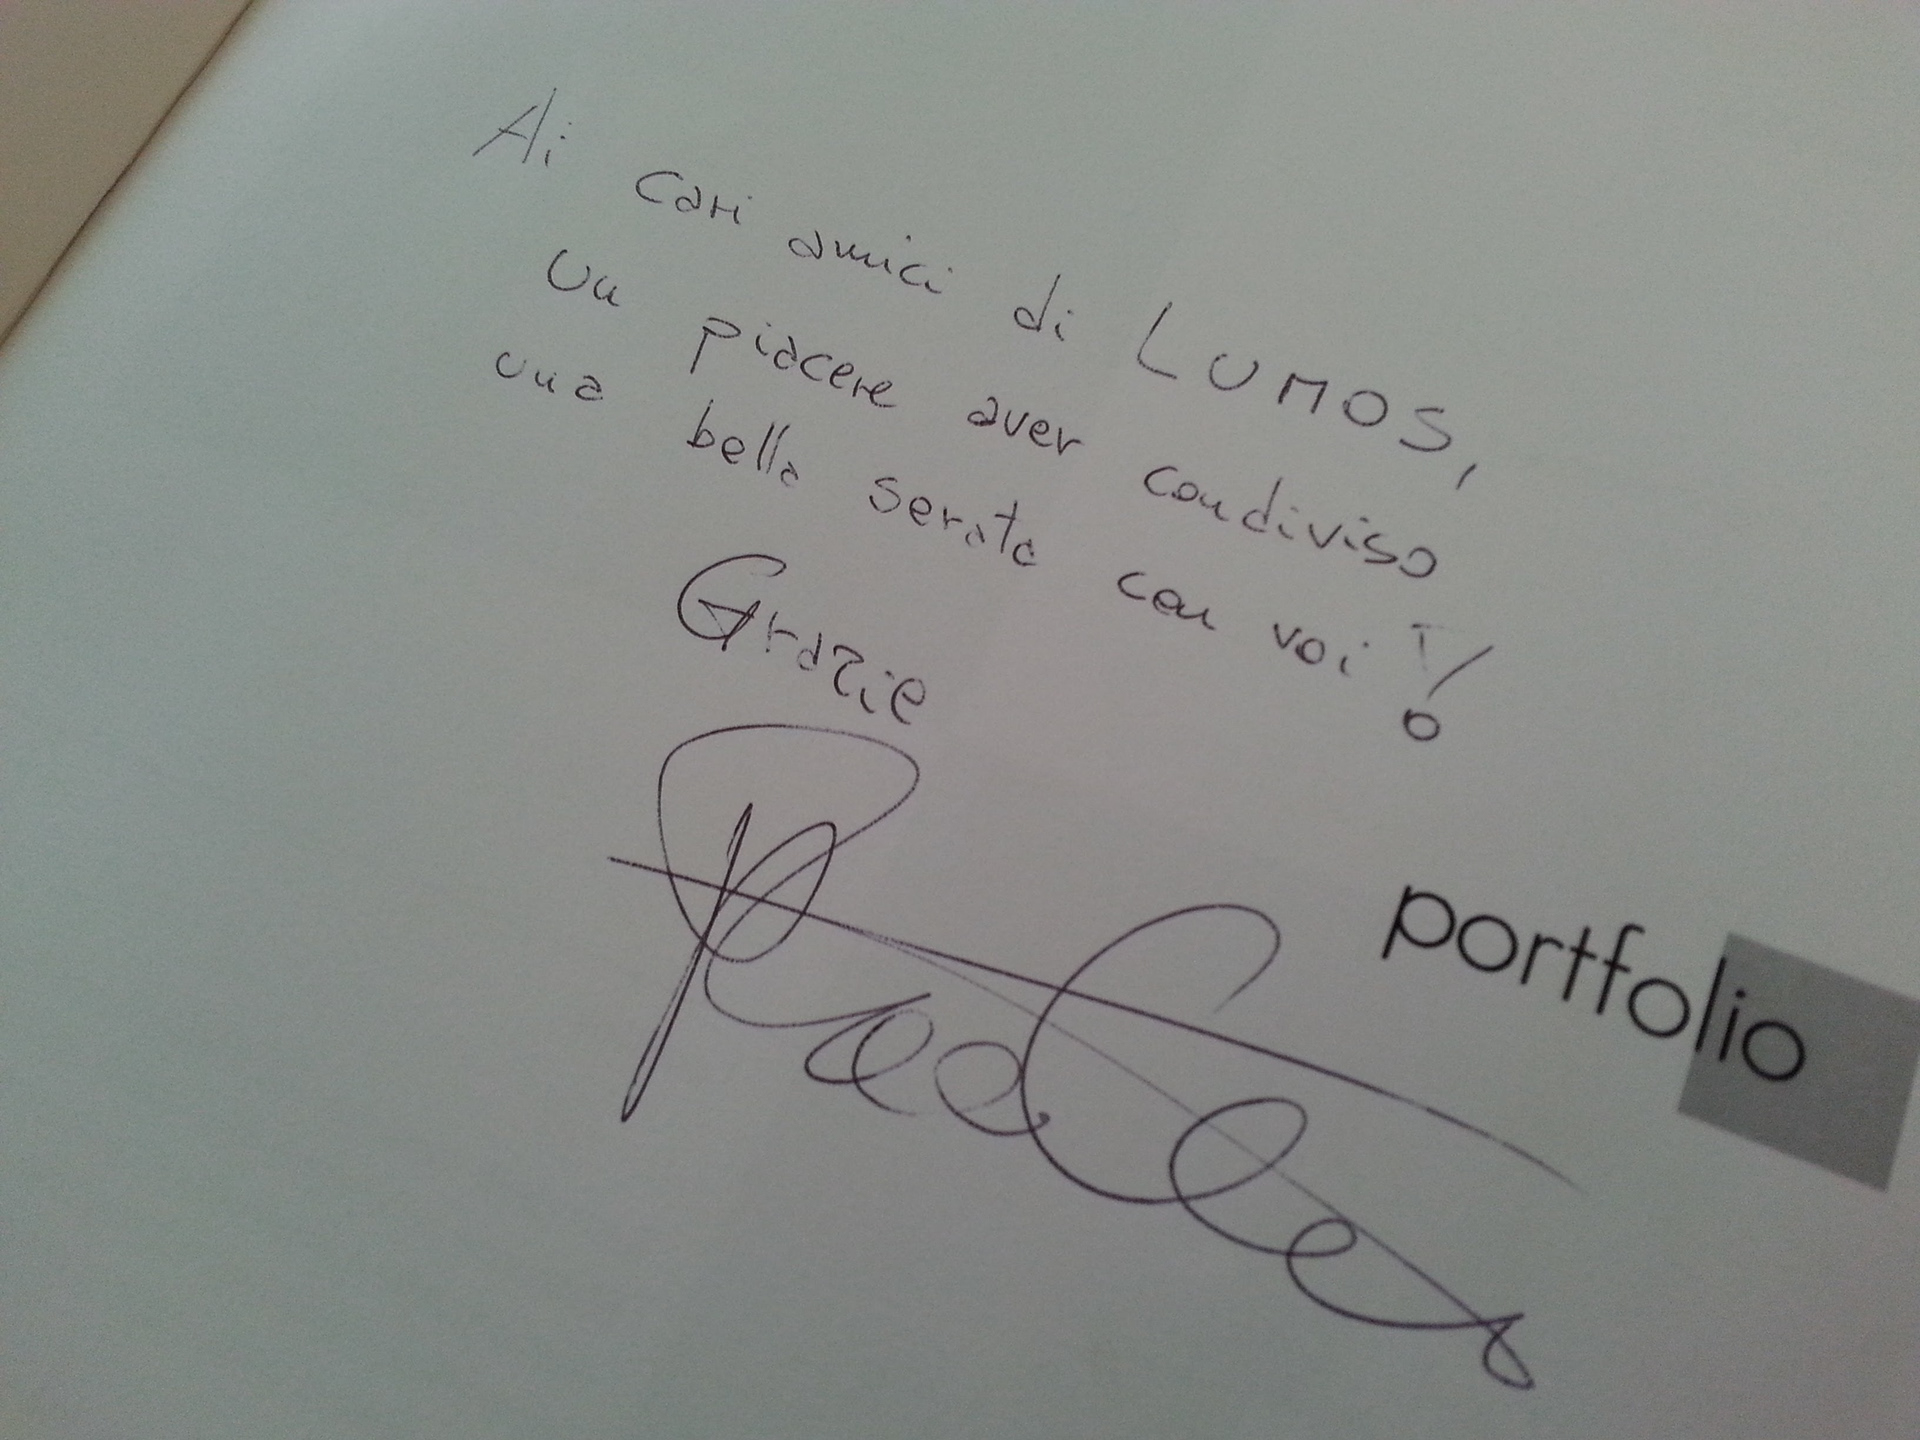 Ai cari amici di LUMOS,
Un piacere aver condiviso
una bella serata con voi!
Grazie
portfolio